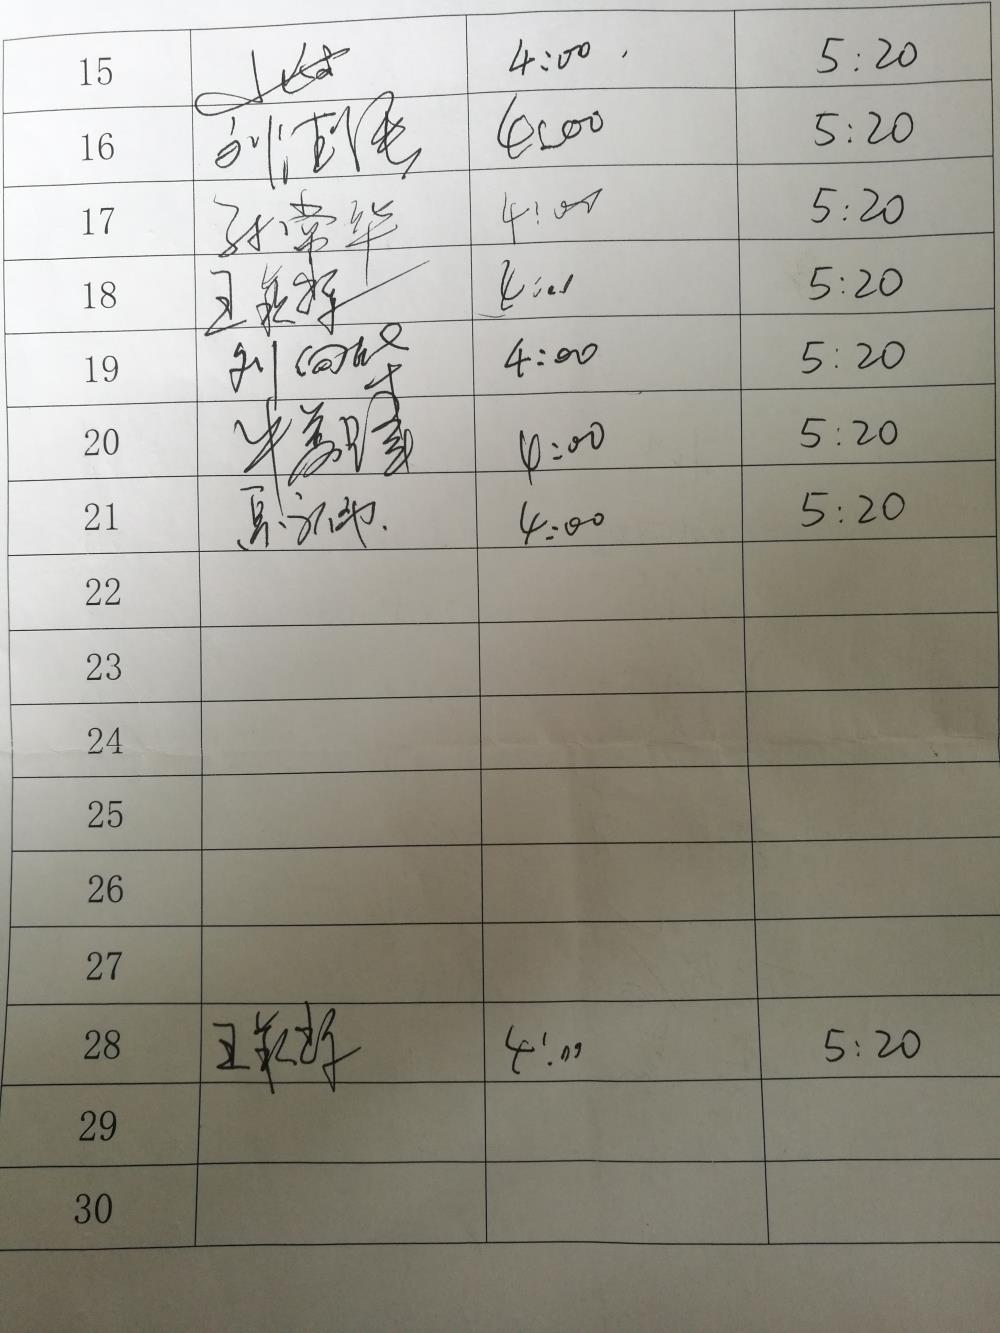 15 4:00 5:20
16 刘 4:00 5:20
17 孙常华 4:00 5:20
18 王 4:00 5:20
19 刘 4:00 5:20
20 牛 4:00 5:20
21 4:00 5:20
22
23
24
25
26
27
28 王 4:00 5:20
29
30